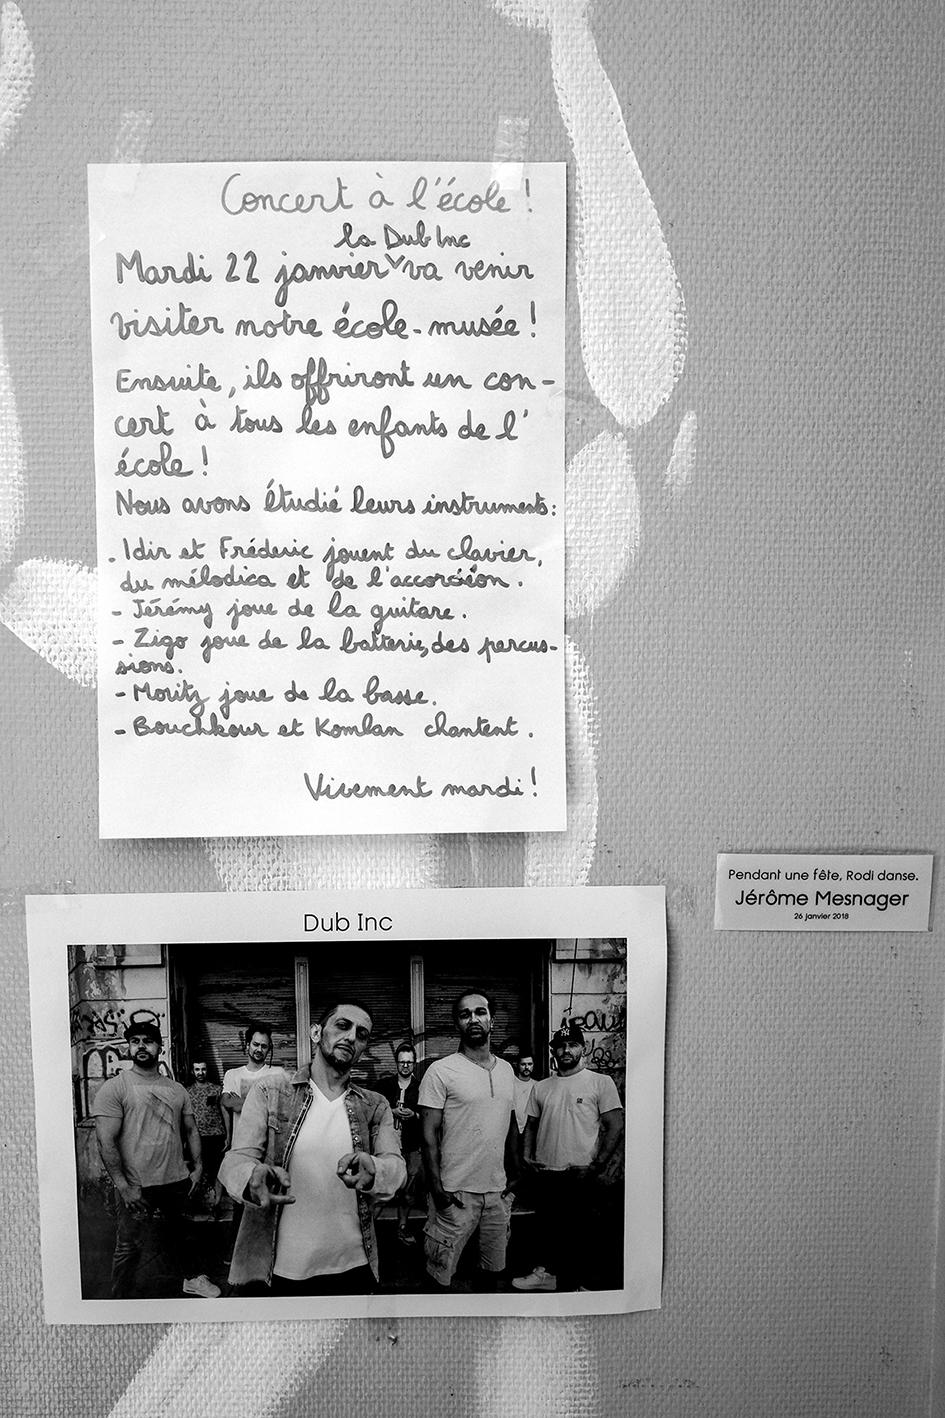 Concert à l'école !
la Dub Inc
Mardi 22 janvier va venir
visiter notre école-musée !
Ensuite, ils offriront un con-
cert à tous les enfants de l'
école !
Nous avons étudié leurs instruments:
. Idir et Fréderic jouent du clavier,
du mélodica et de l'accordéon.
- Jérémy joue de la guitare.
- Zigo joue de la batterie, des percus-
sions.
- Moritz joue de la basse.
- Bouchkour et Komlan chantent.
Vivement mardi !
Pendant une fête, Rodi danse.
Jérôme Mesnager
26 janvier 2018
Dub Inc